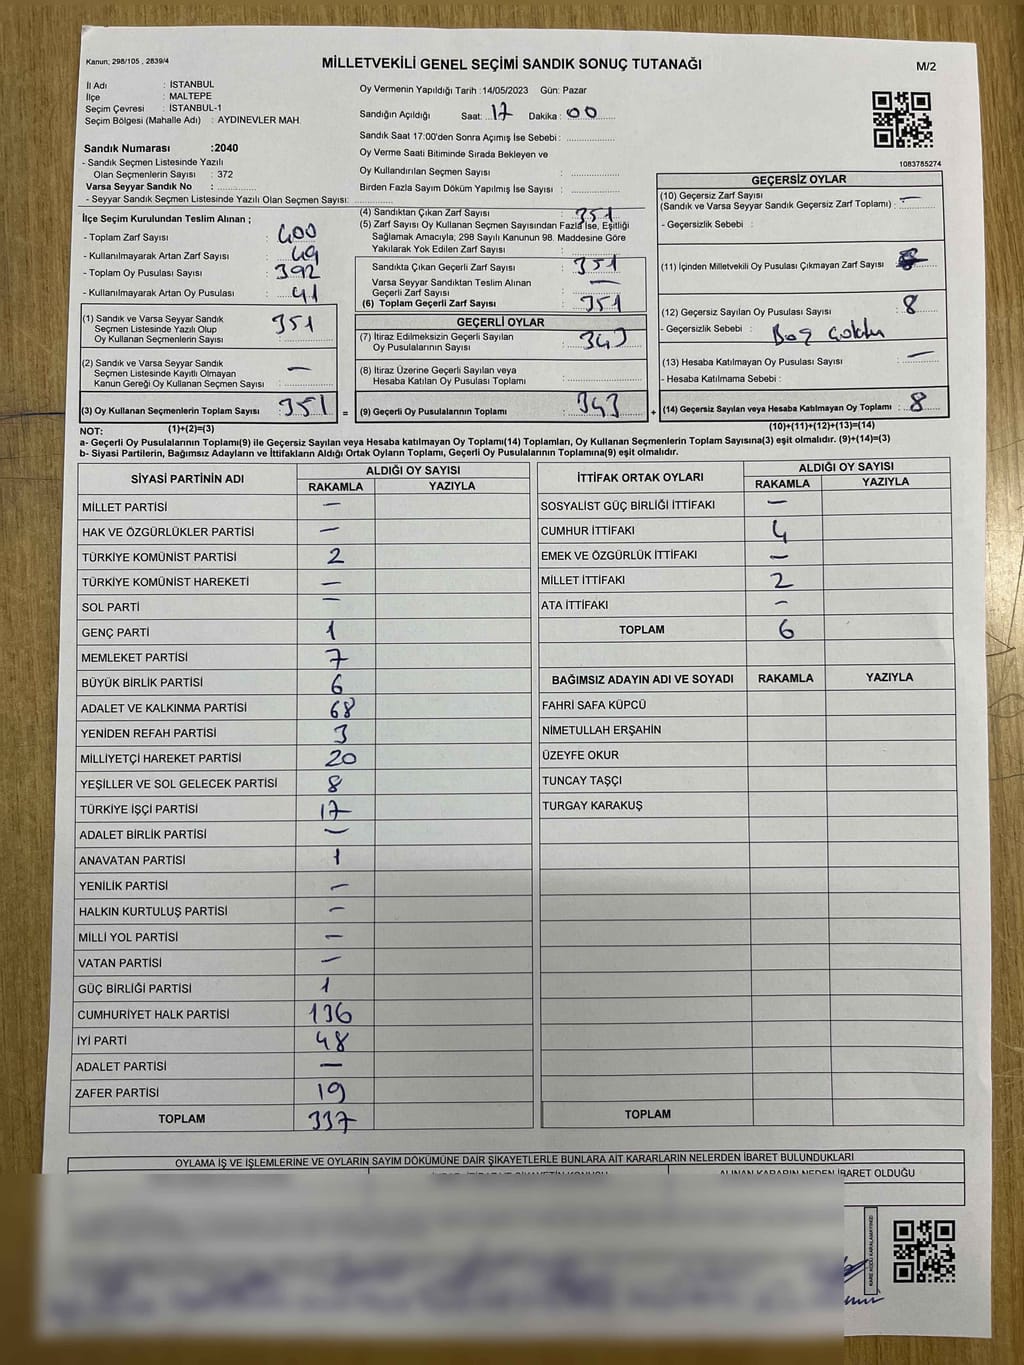 Kanun; 298/105 , 2839/4
MİLLETVEKİLİ GENEL SEÇİMİ SANDIK SONUÇ TUTANAĞI
M/2
İl Adı : İSTANBUL
İlçe : MALTEPE
Seçim Çevresi : İSTANBUL-1
Seçim Bölgesi (Mahalle Adı) : AYDINEVLER MAH.
Oy Vermenin Yapıldığı Tarih :14/05/2023 Gün: Pazar
Sandığın Açıldığı Saat: 17 Dakika : 00
Sandık Saat 17:00'den Sonra Açımış İse Sebebi :
Oy Verme Saati Bitiminde Sırada Bekleyen ve
Oy Kullandırılan Seçmen Sayısı :
Birden Fazla Sayım Döküm Yapılmış İse Sayısı :
1083785274
Sandık Numarası :2040
- Sandık Seçmen Listesinde Yazılı
Olan Seçmenlerin Sayısı : 372
Varsa Seyyar Sandık No :
- Seyyar Sandık Seçmen Listesinde Yazılı Olan Seçmen Sayısı:
İlçe Seçim Kurulundan Teslim Alınan ;
- Toplam Zarf Sayısı : 400
- Kullanılmayarak Artan Zarf Sayısı : 49
- Toplam Oy Pusulası Sayısı : 392
- Kullanılmayarak Artan Oy Pusulası : 41
(1) Sandık ve Varsa Seyyar Sandık
Seçmen Listesinde Yazılı Olup
Oy Kullanan Seçmenlerin Sayısı : 351
(2) Sandık ve Varsa Seyyar Sandık
Seçmen Listesinde Kayıtlı Olmayan
Kanun Gereği Oy Kullanan Seçmen Sayısı : —
(3) Oy Kullanan Seçmenlerin Toplam Sayısı : 351 =
(1)+(2)=(3)
(4) Sandıktan Çıkan Zarf Sayısı : 351
(5) Zarf Sayısı Oy Kullanan Seçmen Sayısından Fazla İse, Eşitliği
Sağlamak Amacıyla, 298 Sayılı Kanunun 98. Maddesine Göre
Yakılarak Yok Edilen Zarf Sayısı :
Sandıkta Çıkan Geçerli Zarf Sayısı : 351
Varsa Seyyar Sandıktan Teslim Alınan
Geçerli Zarf Sayısı : —
(6) Toplam Geçerli Zarf Sayısı : 351
GEÇERLİ OYLAR
(7) İtiraz Edilmeksizin Geçerli Sayılan
Oy Pusulalarının Sayısı : 343
(8) İtiraz Üzerine Geçerli Sayılan veya
Hesaba Katılan Oy Pusulası Toplamı :
(9) Geçerli Oy Pusulalarının Toplamı : 343 +
GEÇERSİZ OYLAR
(10) Geçersiz Zarf Sayısı
(Sandık ve Varsa Seyyar Sandık Geçersiz Zarf Toplamı) : —
- Geçersizlik Sebebi :
(11) İçinden Milletvekili Oy Pusulası Çıkmayan Zarf Sayısı :
(12) Geçersiz Sayılan Oy Pusulası Sayısı : 8
- Geçersizlik Sebebi : Boş
(13) Hesaba Katılmayan Oy Pusulası Sayısı : —
- Hesaba Katılmama Sebebi :
(14) Geçersiz Sayılan veya Hesaba Katılmayan Oy Toplamı : 8
(10)+(11)+(12)+(13)=(14)
NOT:
a- Geçerli Oy Pusulalarının Toplamı(9) ile Geçersiz Sayılan veya Hesaba katılmayan Oy Toplamı(14) Toplamları, Oy Kullanan Seçmenlerin Toplam Sayısına(3) eşit olmalıdır. (9)+(14)=(3)
b- Siyasi Partilerin, Bağımsız Adayların ve İttifakların Aldığı Ortak Oyların Toplamı, Geçerli Oy Pusulalarının Toplamına(9) eşit olmalıdır.
SİYASİ PARTİNİN ADI ALDIĞI OY SAYISI
RAKAMLA YAZIYLA
MİLLET PARTİSİ —
HAK VE ÖZGÜRLÜKLER PARTİSİ —
TÜRKİYE KOMÜNİST PARTİSİ 2
TÜRKİYE KOMÜNİST HAREKETİ —
SOL PARTİ —
GENÇ PARTİ 1
MEMLEKET PARTİSİ 7
BÜYÜK BİRLİK PARTİSİ 6
ADALET VE KALKINMA PARTİSİ 68
YENİDEN REFAH PARTİSİ 3
MİLLİYETÇİ HAREKET PARTİSİ 20
YEŞİLLER VE SOL GELECEK PARTİSİ 8
TÜRKİYE İŞÇİ PARTİSİ 17
ADALET BİRLİK PARTİSİ —
ANAVATAN PARTİSİ 1
YENİLİK PARTİSİ —
HALKIN KURTULUŞ PARTİSİ —
MİLLİ YOL PARTİSİ —
VATAN PARTİSİ —
GÜÇ BİRLİĞİ PARTİSİ 1
CUMHURİYET HALK PARTİSİ 136
İYİ PARTİ 48
ADALET PARTİSİ —
ZAFER PARTİSİ 19
TOPLAM 337
İTTİFAK ORTAK OYLARI ALDIĞI OY SAYISI
RAKAMLA YAZIYLA
SOSYALİST GÜÇ BİRLİĞİ İTTİFAKI —
CUMHUR İTTİFAKI 4
EMEK VE ÖZGÜRLÜK İTTİFAKI —
MİLLET İTTİFAKI 2
ATA İTTİFAKI —
TOPLAM 6
BAĞIMSIZ ADAYIN ADI VE SOYADI RAKAMLA YAZIYLA
FAHRİ SAFA KÜPCÜ
NİMETULLAH ERŞAHİN
ÜZEYFE OKUR
TUNCAY TAŞÇI
TURGAY KARAKUŞ
TOPLAM
OYLAMA İŞ VE İŞLEMLERİNE VE OYLARIN SAYIM DÖKÜMÜNE DAİR ŞİKAYETLERLE BUNLARA AİT KARARLARIN NELERDEN İBARET BULUNDUKLARI
ALINAN KARARIN NEDEN İBARET OLDUĞU
KARE KODU KARALAMAYINIZ!